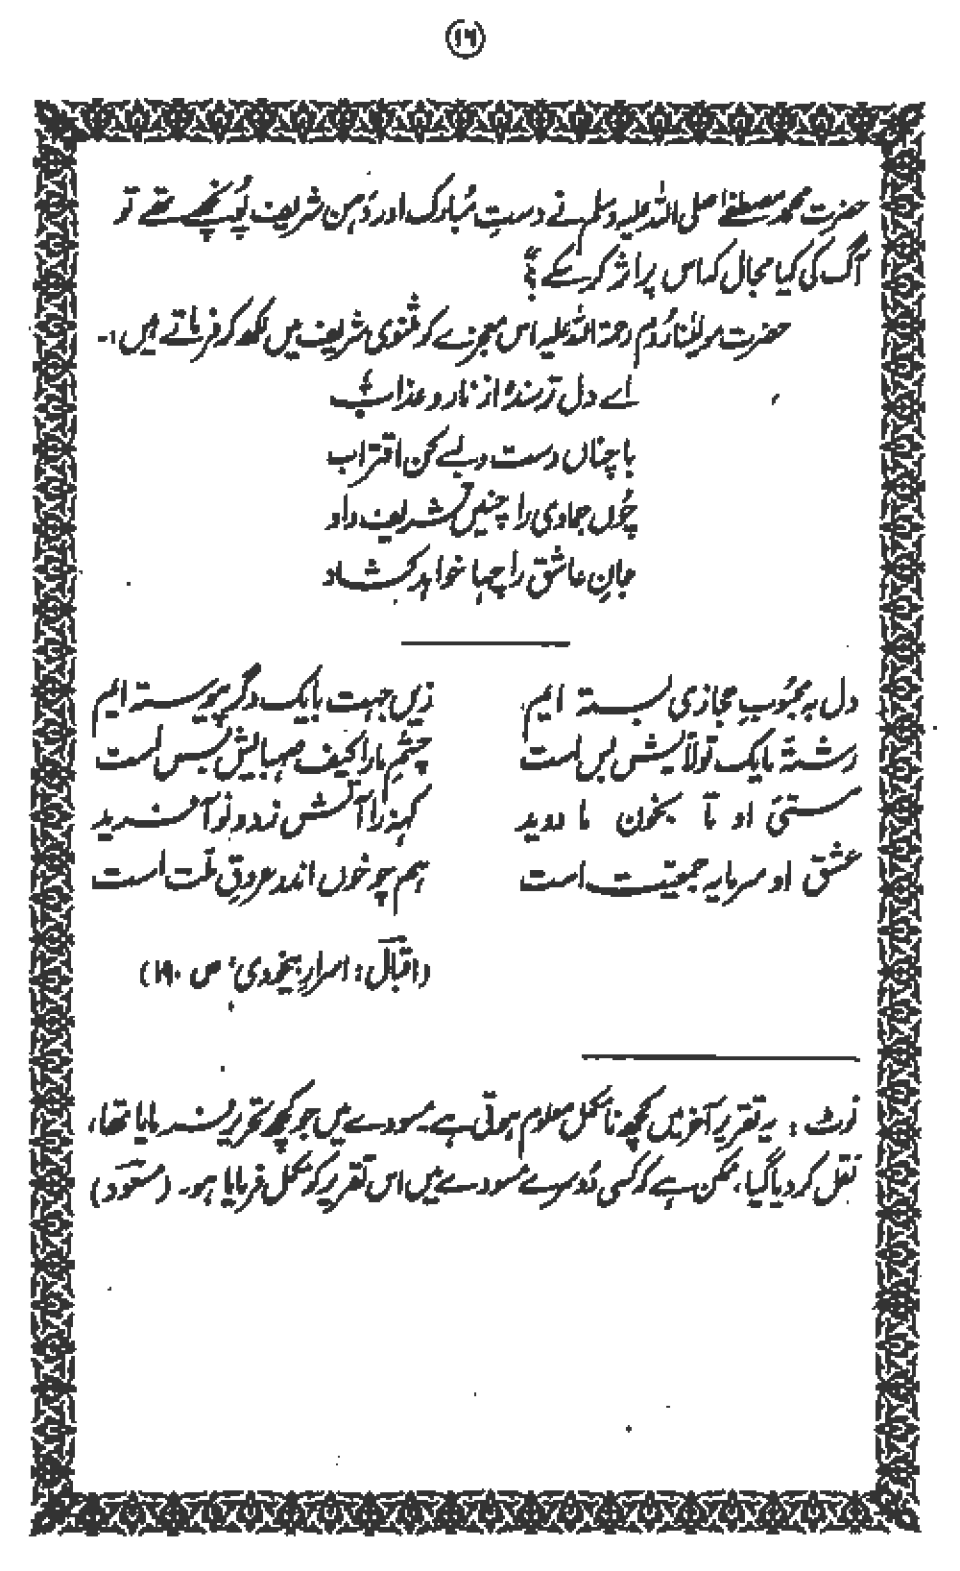 ۱۶
حضرت محمد مصطفےٰ صلی اللہ علیہ وسلم نے دستِ مُبارک اور دَہن شریف پُونچھے تھے تو
آگ کی کیا مجال کہ اس پر اثر کر سکے ؟
حضرت مولیٰنا رُوم رحمۃ اللہ علیہ اس معجزے کو مثنوی شریف میں لکھ کر فرماتے ہیں :-
اے دل ترسندہ از نار و عذاب
با چناں دست و لبے کن اقتراب
چُوں جمادی را چنیں تشریف داد
جانِ عاشق را چہا خواہد کشاد
دل بہ محبُوبِ مجازی بستہ ایم    زیں جہت با یک دگر پیوستہ ایم
رشتۂ ما یک تولاّیش بس است    چشمِ ما را کیف صہبایش بس است
مستئ او تا بخون ما دوید    کہنہ را آتش زد و نو آفرید
عشق او سرمایۂ جمعیت است    ہم چو خوں اندر عروقِ ملّت است
(اقبال : اسرارِ بیخودی، ص ۱۹۰)
نوٹ : یہ تقریر آخر میں کچھ نامکمل معلوم ہوتی ہے۔ مسودے میں جو کچھ تحریر فرمایا تھا،
نقل کر دیا گیا، ممکن ہے کہ کسی دُوسرے مسودے میں اس تقریر کو مکمل فرمایا ہو۔ (مسعود)